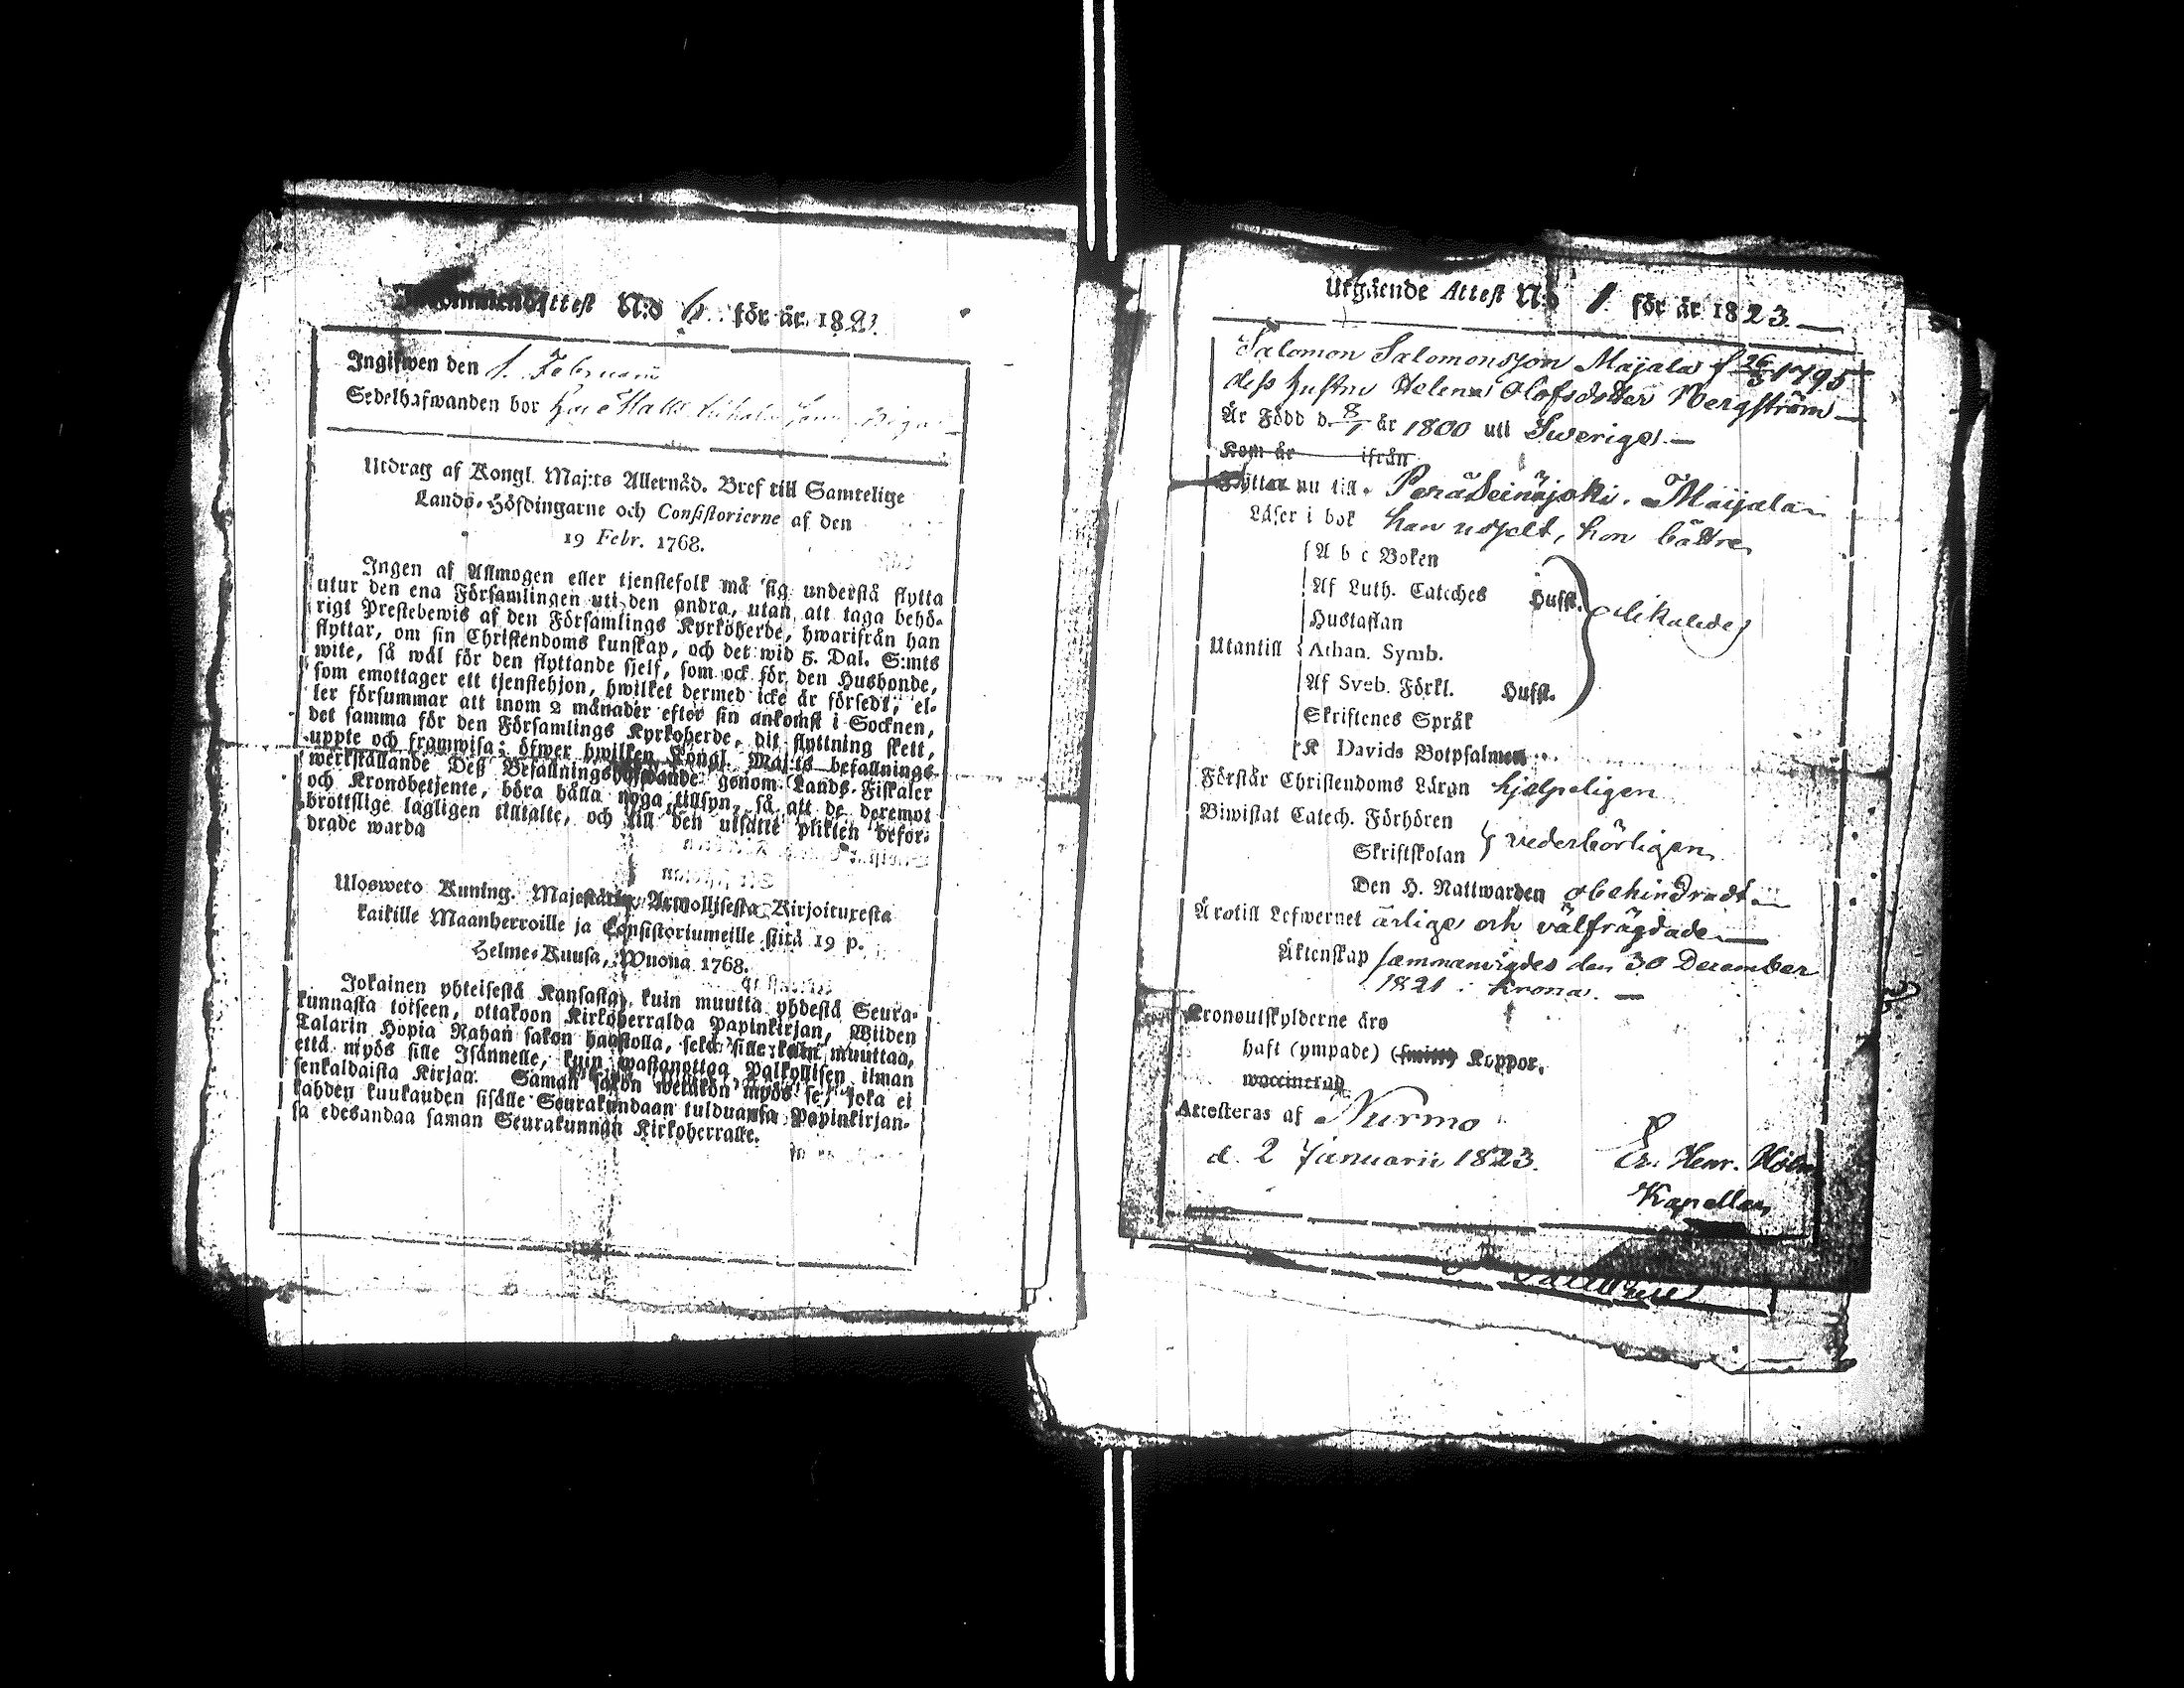 Inkommendeattest N:o 6. för år 1823.
Ingifwen den 1. Februarii
Sedelhafwanden bor hos Matts
Utdrag af Kongl. Maj:ts Allernåd. Bref till Samtelige
Lands-Höfdingarne och Consistorierne af den
19 Febr. 1768.
Ingen af Allmogen eller tjenstefolk må sig understå flytta
utur den ena Församlingen uti den andra, utan att taga behö-
rigt Prestebewis af den Församlings Kyrkoherde, hwarifrån han
flyttar, om sin Christendoms kunskap, och det wid 5. Dal. S:mts
wite, så wäl för den flyttande sjelf, som ock för den Husbonde,
som emottager ett tjenstehjon, hwilket dermed icke är försedt, el-
ler försummar att inom 2 månader efter sin ankomst i Socknen,
det samma för den Församlings Kyrkoherde, dit flyttning skett,
uppte och framwisa; öfwer hwilken Kongl. Maj:ts befallnings
werkställande Deß Befallningshafwande genom Lands-Fiskaler
och Kronobetjente, böra hålla noga tillsyn, så att de deremot
brottslige lagligen tilltalte, och till den utsatte plikten beför-
drade warda
Ulosweto Kuning. Majestätin Armollisesta Kirjoituxesta
kaikille Maanherroille ja Consistoriumeille siitä 19 p.
Helme-Kuusa, Wuona 1768.
Jokainen yhteisestä Kansasta, kuin muutta yhdestä Seura-
kunnasta toiseen, ottakoon Kirkoherralda Papinkirjan, Wiiden
Talarin Hopia Rahan sakon haastolla, sekä sille kuin muuttaa,
että myös sille Isännelle, kuin wastanottaa Palkollisen ilman
senkaldaista Kirjaa. Saman sakon wetäkön myös se, joka ei
kahden kuukauden sisälle Seurakundaan tulduansa Papinkirjan-
sa edesandaa saman Seurakunnan Kirkoherralle.
Utgående Attest N:o 1. för år 1823.
Salomon Salomonsson Maijala f 26/3 1795
dess hustru Helena Olofsdotter Bergström
Är Född d. 8/1 år 1800 uti Sverige.
Kom år ifrån
Flyttar nu till Peräseinäjoki. Maijala
Läser i bok han uselt, hon bättre
A b c Boken
Af Luth. Cateches Husst.
Hustaflan
olikaledes
Utantill Athan. Symb.
Af Sveb. Förkl. Husst.
Skriftenes Språk
K Davids Botpsalmer
Förstår Christendoms Läran hjelpeligen
Biwistat Catech. Förhören
Skriftskolan vederbörligen
Den H. Nattwarden obehindradt
Är otill Lefwernet ärlige och välfrägdade
Äktenskap sammanvigdes den 30 December
1821 i Krona.
Kronoutskylderne äro
haft (ympade) (smitt) Koppor.
waccinerad
Attesteras af Nurmo
d. 2 Januarii 1823. Er. Henr. Holm
Kapellan